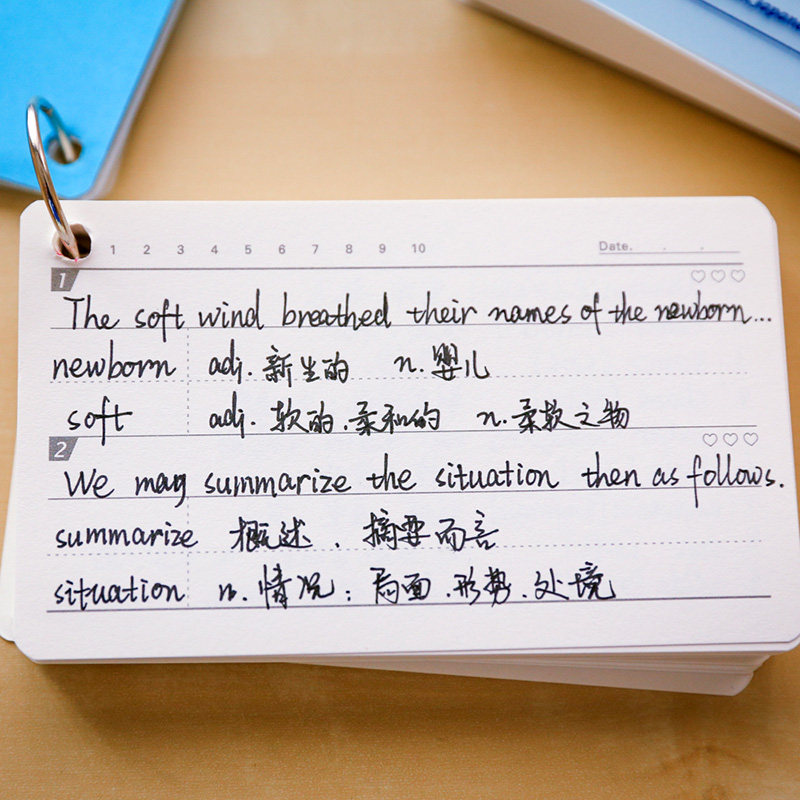 1 2 3 4 5 6 7 8 9 10 Date. . .
1
The soft wind breathed their names of the newborn...
newborn adj. 新生的 n. 婴儿
soft adj. 软的.柔和的 n. 柔软之物
2
We may summarize the situation then as follows.
summarize 概述、摘要而言
situation n. 情况：局面.形势.处境